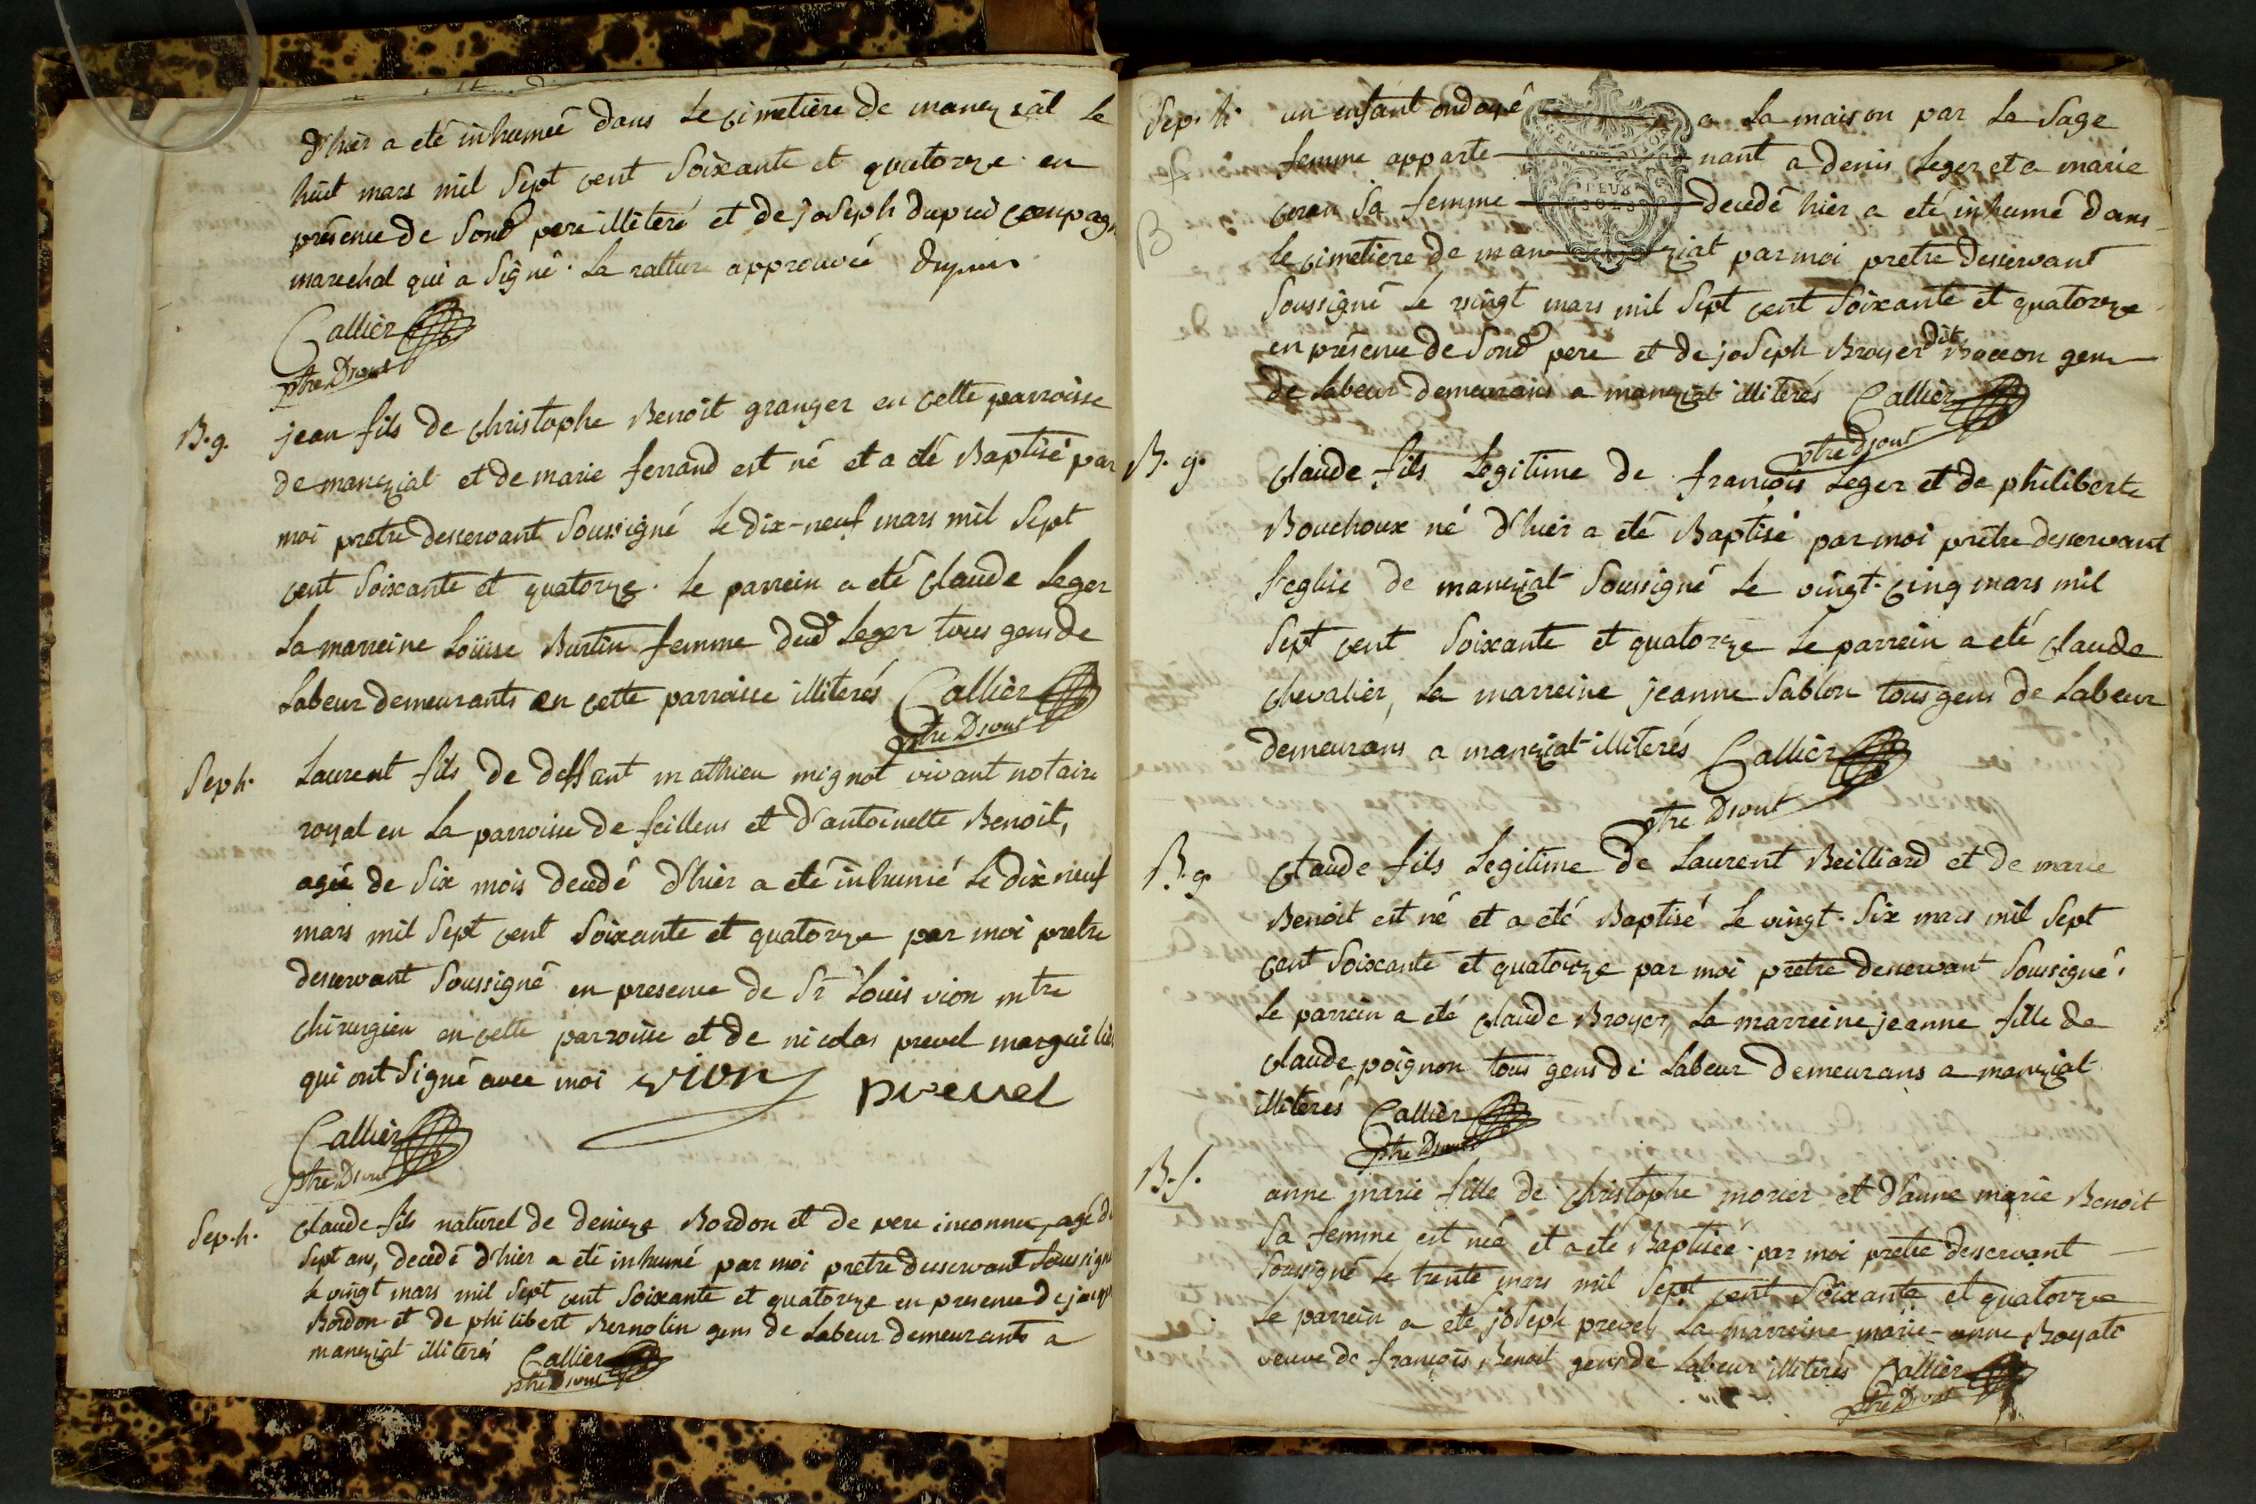 d'hier a eté inhumeé dans le cimetière de manezïat le
huit mars mil Sept cent Soixante et quatorze en
présence de Sond pere illiteré et de joSeph dupuis compag
marechal qui a Signé. La rature approuvée dupuis
Callier
ptre Dsvt
B.g. jean fils de christophe Benoit granger en cette parroisse
de maneziat et de marie ferrand est né et a eté Baptisé par
moi pretre desservant Soussigné le dix-neuf mars mil Sept
cent Soixante et quatorze. le parrein a eté claude Leger
La marreine Loüise Burtin femme dud Leger tous gens de
Labeur demeurants en cette parroisse illiterés Callier
ptre Dsvt
Sep.h. Laurent fils de deffunt mathieu mignot vivant notaire
royal en La parroisse de feillens et d'antoinette Benoit,
ageé de Six mois decedé d'hier a eté inhumé le dix neuf
mars mil Sept cent Soixante et quatorze par moi pretre
desservant Soussigné en presence de Sr Louis vion mtre
chirurgien en cette parroisse et de nicolas prevel marguilie
qui ont Signé avec moi vion prevel
Callier
ptre Dsvt
Sep.h. claude fils naturel de denize Bordon et de pere inconnu, agé d
Sept ans, decedé d'hier a eté inhumé par moi pretre desservant Soussign
le vingt mars mil Sept cent Soixante et quatorze en presence de jacqu
Bordon et de philibert Bernolin gens de Labeur demeurants a
maneziat illiterés Callier
ptre Dsvt
Sep.h. un enfant ondoyé a La maison par La Sage
femme apparte nant a denis Leger et a marie
Sa femme decedé hier a eté inhumé dans
le cimetiere de mane ziat par moi pretre desservant
Soussigné le vingt mars mil Sept cent Soixante et quatorze
en présence de Sond pere et de joSeph Broyer dit gens
de Labeur demeurans a maneziat illiterés Callier
ptre Dsvt
B.g. claude fils Legitime de françois Leger et de philiberte
Bouchoux né d'hier a eté Baptisé par moi prêtre desservant
l'eglise de maneziat Soussigné le vingt-cinq mars mil
Sept cent Soixante et quatorze le parrein a eté claude
chevalier, La marreine jeanne Sablon tous gens de Labeur
demeurans a maneziat illiterés Callier
ptre Dsvt
B.g. claude fils Legitime de Laurent Beilliard et de marie
Benoit est né et a eté Baptisé le vingt-Six mars mil Sept
cent Soixante et quatorze par moi prêtre desservant Soussigné.
le parrein a eté claude Broyer, La marreine jeanne fille de
claude poignon tous gens de Labeur demeurans a maneziat
illiterés Callier
ptre Dsvt
B.f. anne marie fille de christophe morier et d'anne marie Benoit
Sa femme est née et a eté Baptisée par moi pretre desservant
Soussigné le trente mars mil Sept cent Soixante et quatorze
le parrein a eté joSeph prevel, La marreine marie-anne Boyat
veuve de françois Benoit gens de Labeur illiterés Callier
ptre Dsvt